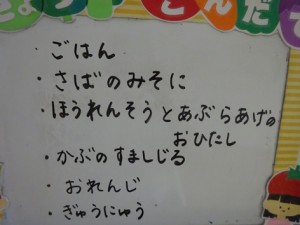 きょうのこんだて
・ごはん
・さばのみそに
・ほうれんそうとあぶらあげの
おひたし
・かぶのすましじる
・おれんじ
・ぎゅうにゅう